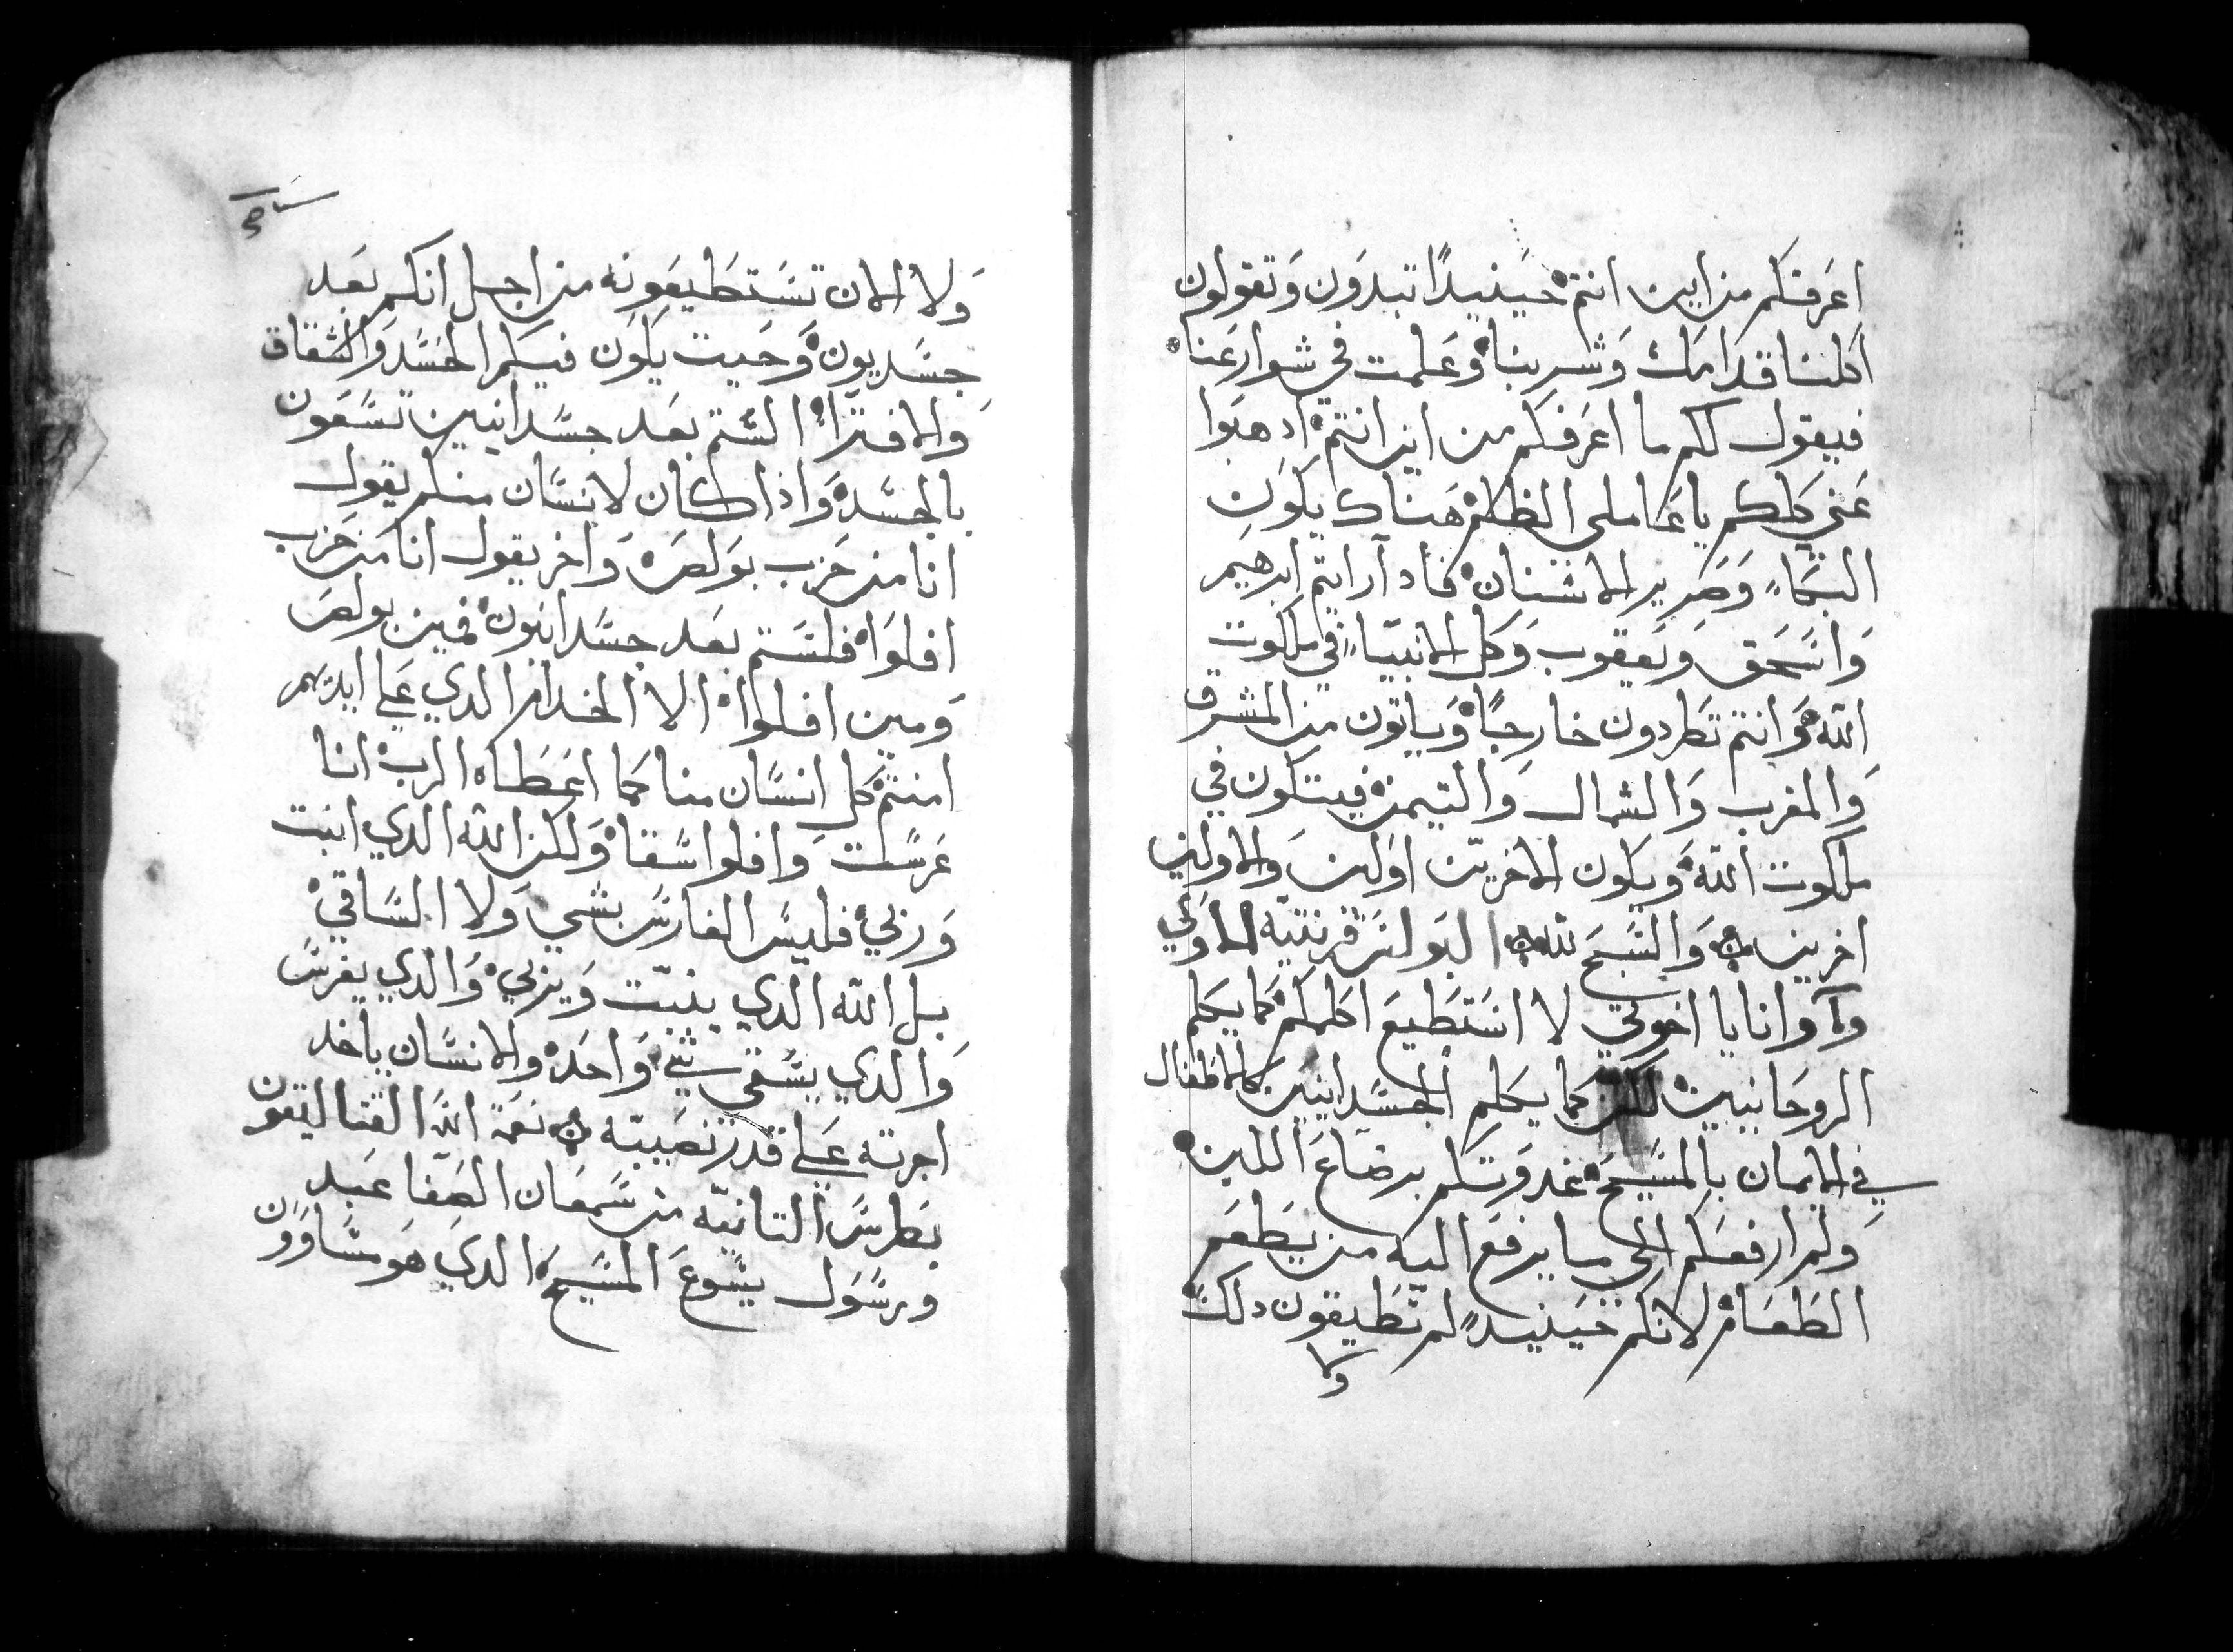 اعرفكم من اين انتم حينيدًا تبدون وتقولون
اكلنا قدامك وشربنا وعلمت في شوارعنا
فيقول لكم ما اعرفكم من اين انتم ادهبوا
عني كلكم يا عاملي الظلم هناك يكون
البكاء وصرير الاسنان فاد ارايتم ابرهيم
واسحق ويعقوب وكل الانبياء في ملكوت
الله وانتم تطردون خارجًا وياتون من المشرق
والمغرب والشمال والتيمن فيتكون في
ملكوت الله ويكون الاخرين اولين والاولين
اخرين والسبح لله البولس قرنتيه الاولي
وانا يا اخوتي لا استطيع اكلمكم كما يكلم
الروحانيين لكن كما يكلم الجسدانيين كالاطفال
في الايمان بالمسيح غدوتكم برضاع اللبن
ولم ارفعكم الي ما يرفع اليه من يطعم
الطعام لانكم حينيدٍ لم تطيقون دلك
ولا
ولا الان تستطيعونه من اجل انكم بعد
جسديون وحيت يكون فيكم الحسد والشقاق
والافترا الستم بعد جسدانيين تسعون
بالجسد واذا كان لانسان منكم يقول
انا من حزب بولص واخر يقول انا من حزب
افلوا فلستم بعد جسدانيون فمين بولص
ومين افلوا الا الخدام الدي علي ايديهم
امنتم كل انسان منا كما اعطاه الرب انا
غرست وافلوا سقا ولكن الله الدي انبت
وربي فليس الغارس بشي ولا الساقي
بل الله الدي ينبت ويربي والدي يغرس
والدي يسقي شي واحد والانسان ياخد
اجرته علي قدر نصيبته نعمة الله القتاليقون
بطرس التانيه من سمعان الصفا عبد
ورسول يسوع المسيح الدي هو مساوون